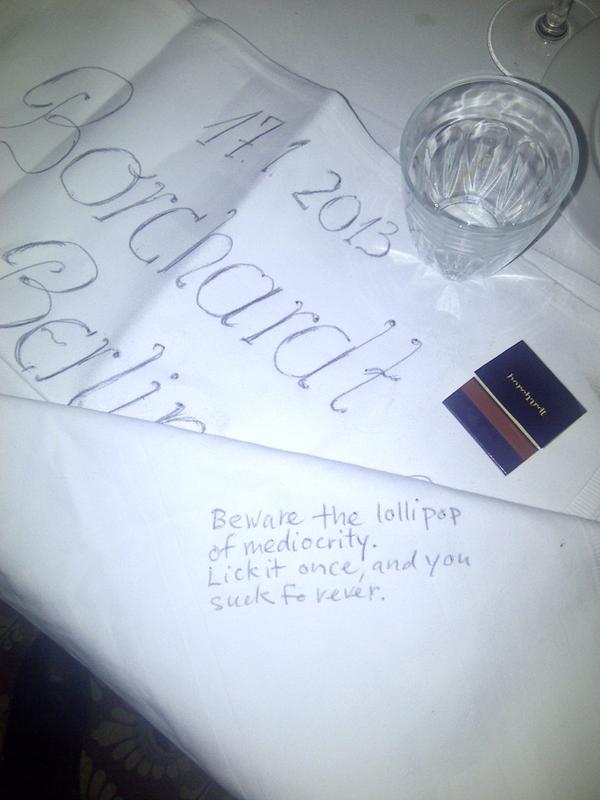 17.1.2013
Borchardt
Berlin
borchardt
Beware the lollipop
of mediocrity.
Lick it once, and you
suck forever.